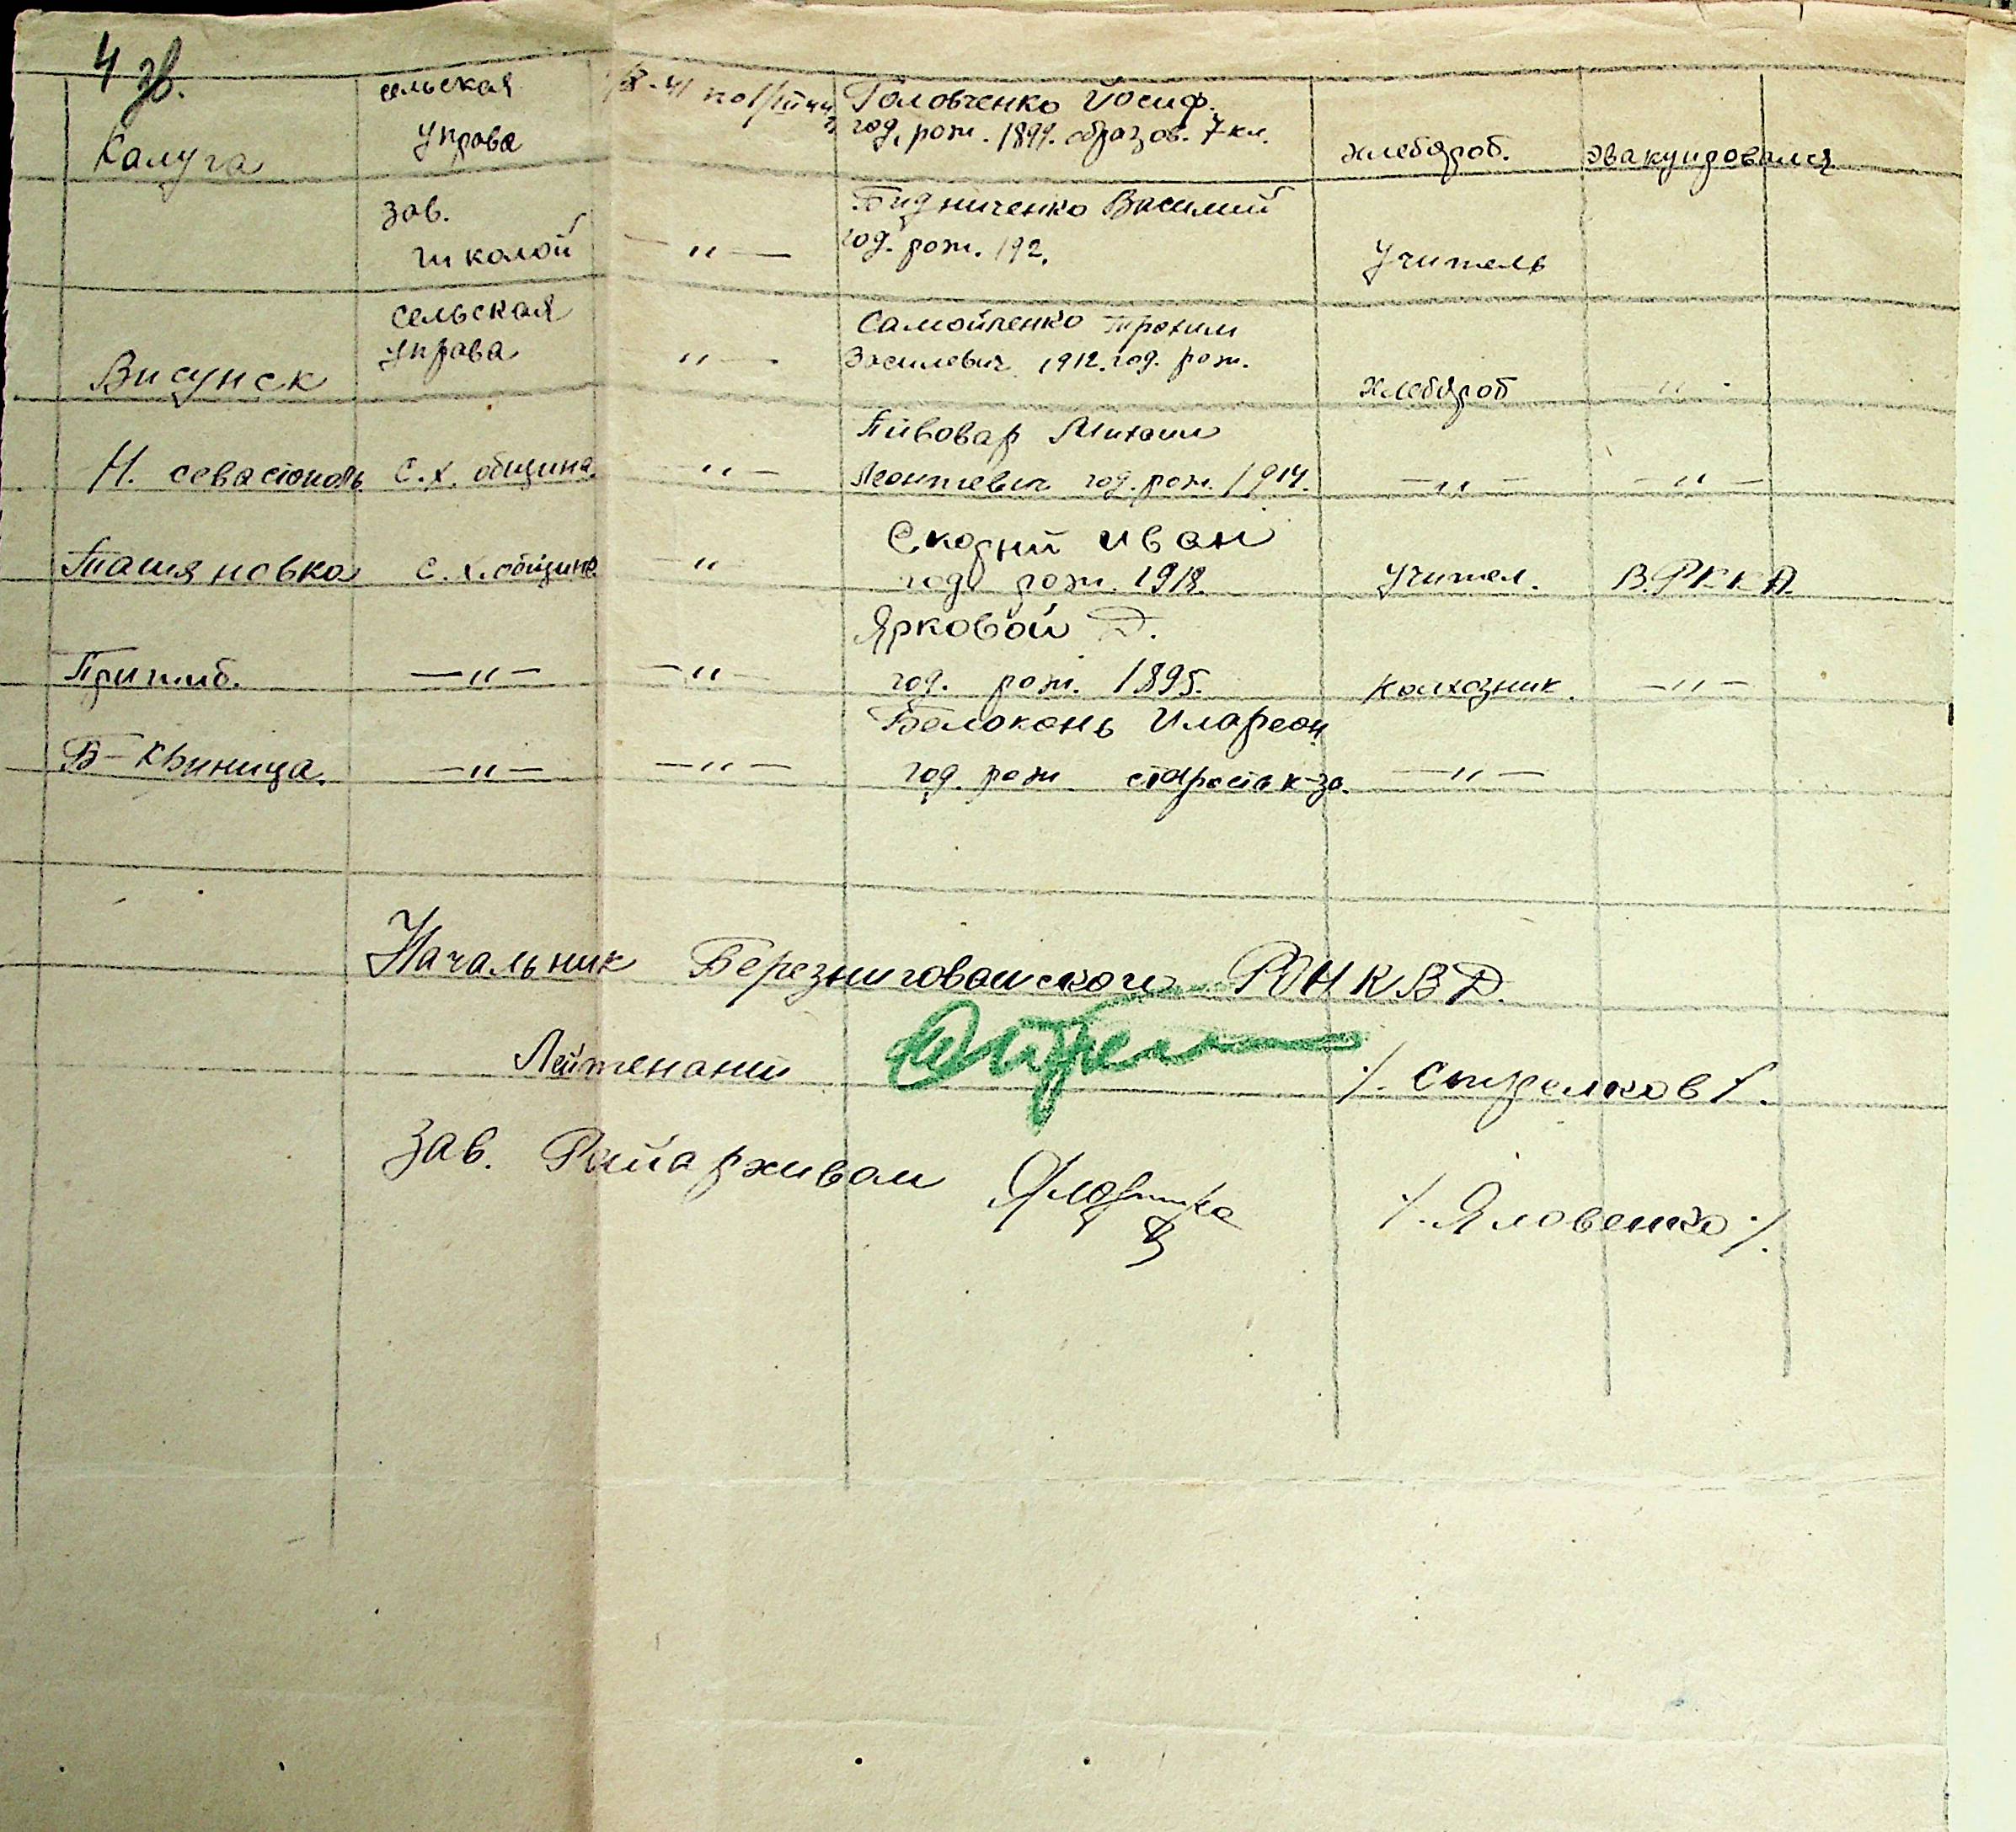 4 зв.
Калуга
сельская
управа
Головченко Йосиф.
год. рож. 1899. образов. 7 кл.
хлебороб.
эвакуировался
зав.
школой
— " —
Бидниченко Василий
год. рож. 192.
Учитель
Висунск
сельская
управа
" —
Самойленко Трохим
Василевич 1912. год. рож.
хлебороб
— " —
Н. севастополь
С. х. община.
— " —
Пивовар Михаил
Леонтевич год. рож. 1914.
— " —
— " —
с. х. община
— "
Скорый Иван
год рож. 1918.
Учител.
В. РККА.
— " —
— " —
Ярковой Д.
год. рож. 1895.
Колхозник.
— " —
Б-Криница.
— " —
— " —
Белоконь Иларион
год. рож староста к-за.
— " —
Начальник Березниговатского РОНКВД.
Лейтенант /. Стрелков /.
Зав. Райархивом /. Яловенко /.